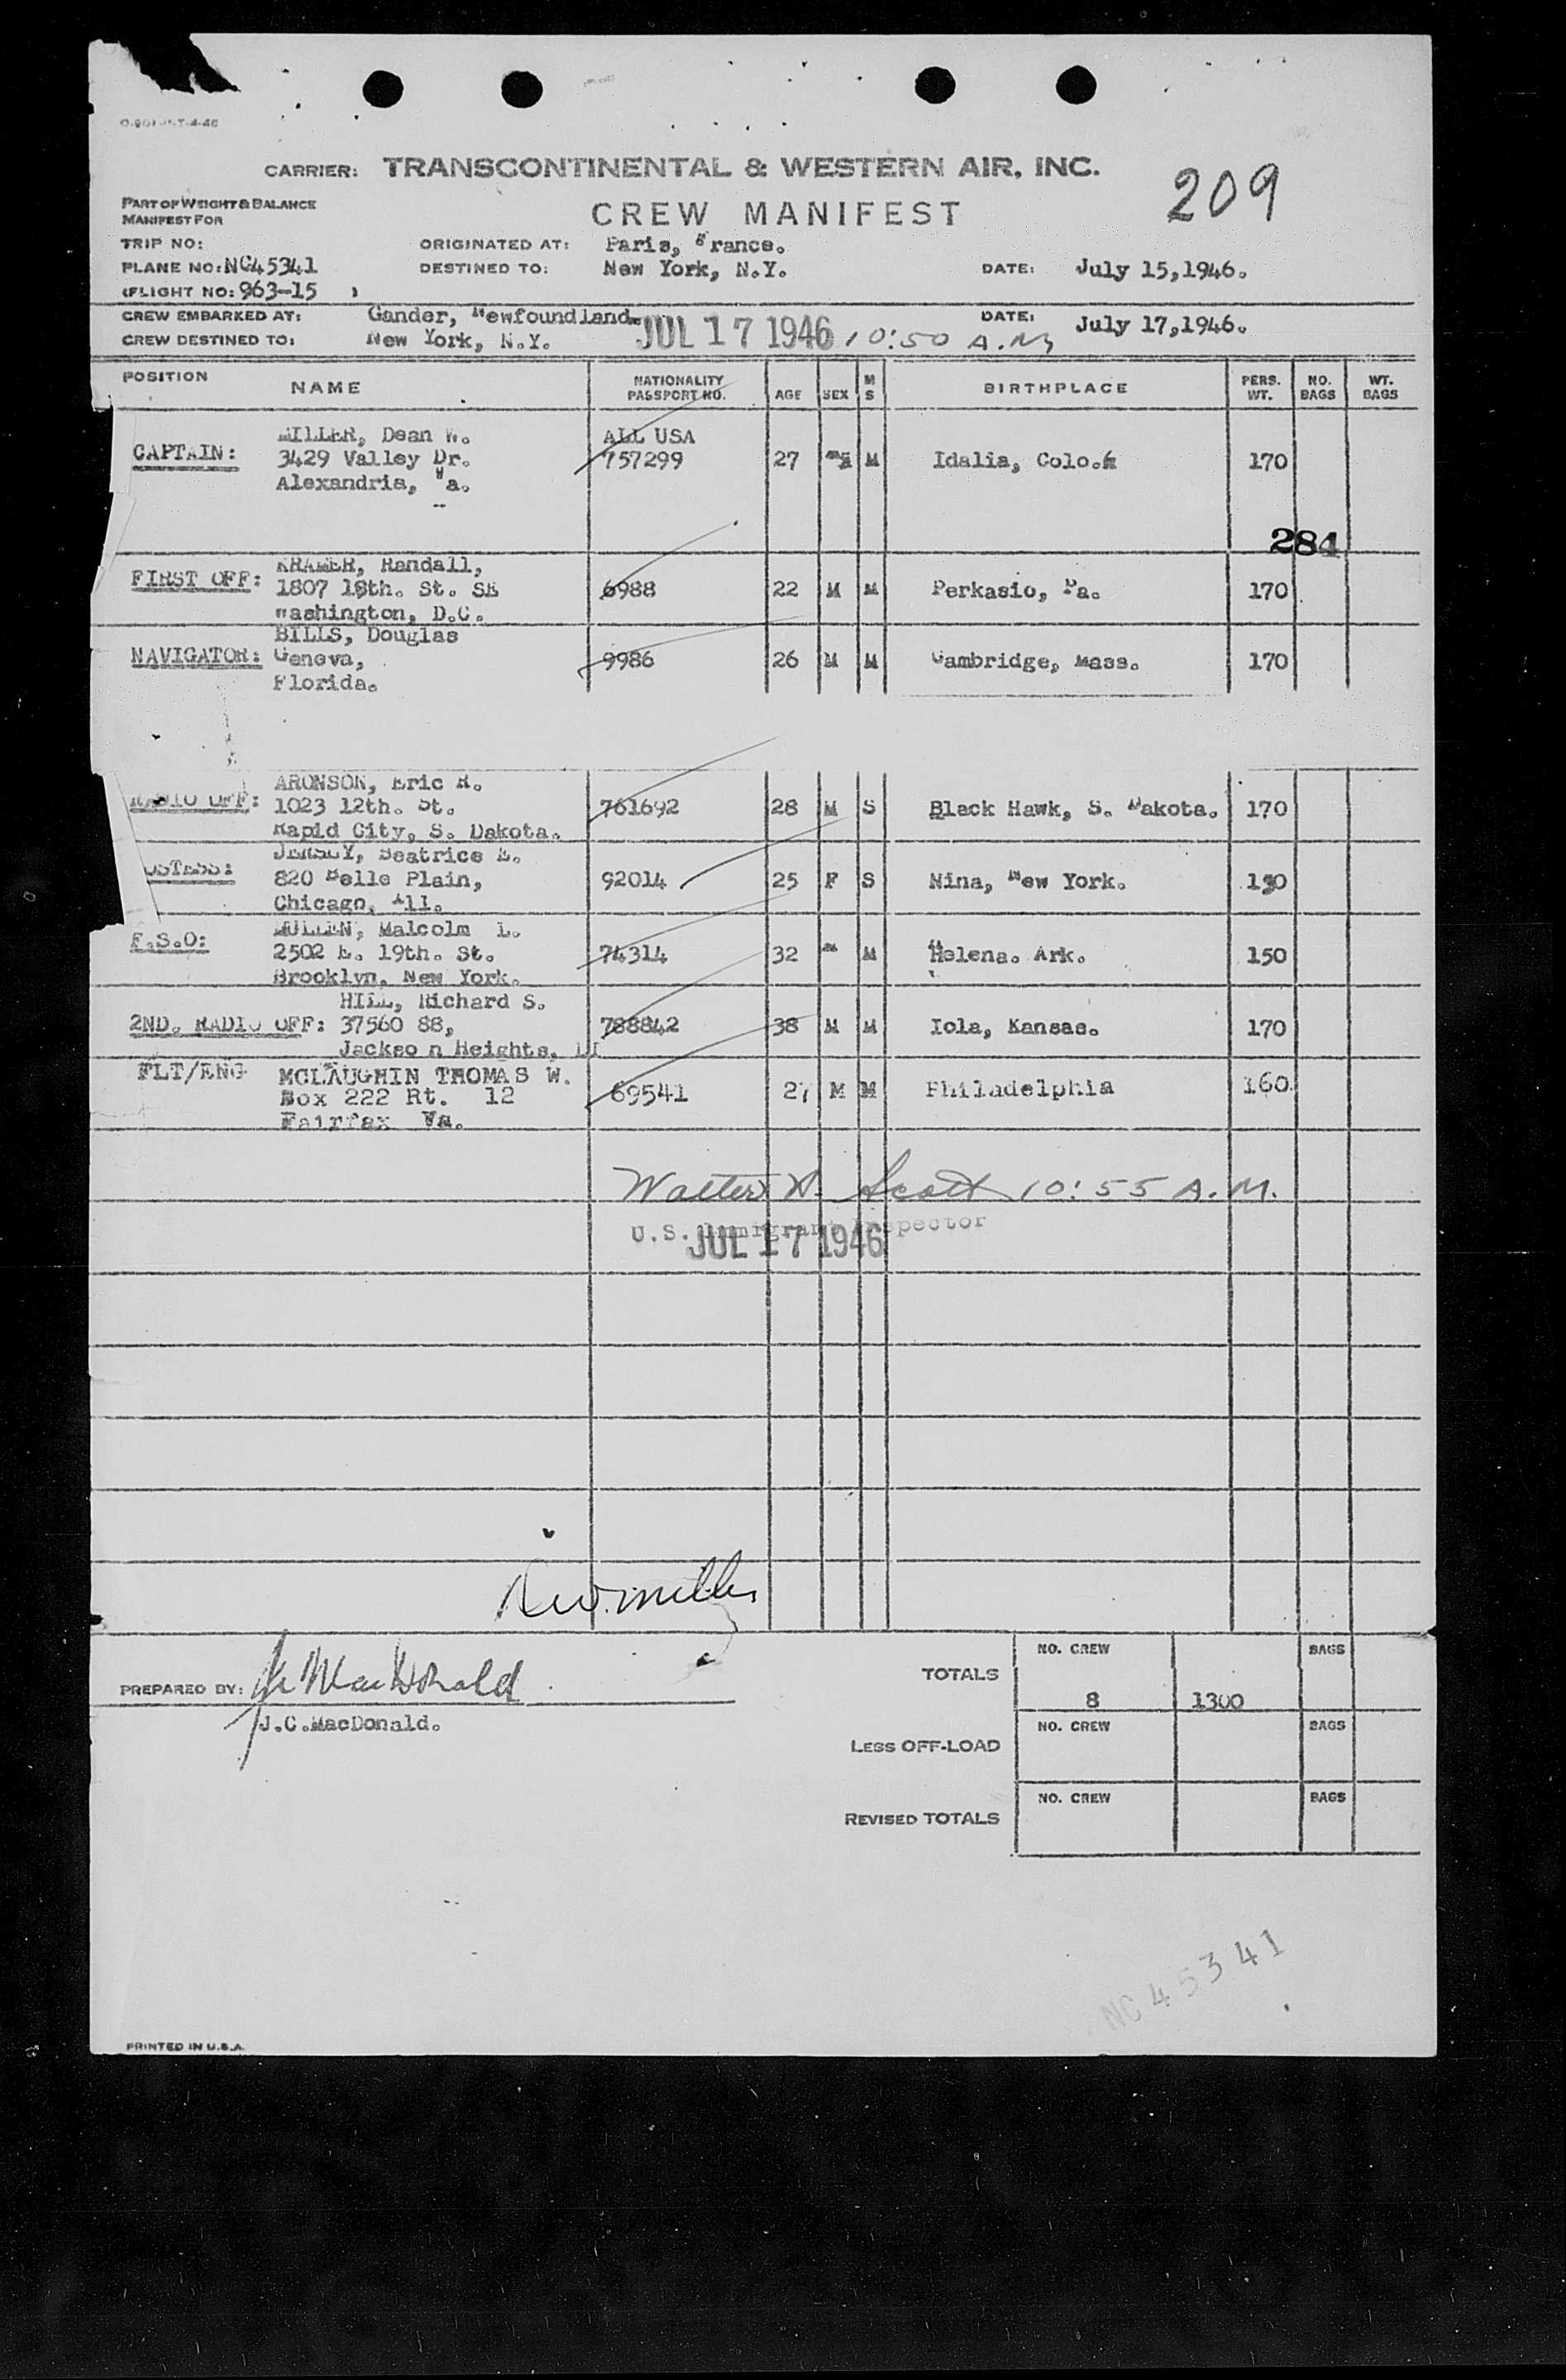 CARRIER: TRANSCONTINENTAL & WESTERN AIR, INC.
209
PART OF WEIGHT & BALANCE
MANIFEST FOR
CREW MANIFEST
TRIP NO:
ORIGINATED AT: Paris, France.
PLANE NO: NC45341
DESTINED TO: New York, N.Y.
DATE: July 15,1946.
(FLIGHT NO: 963-15 )
CREW EMBARKED AT: Gander, Newfoundland.
DATE: July 17,1946.
CREW DESTINED TO: New York, N.Y.
JUL 17 1946 10:50 A.M
POSITION NAME NATIONALITY PASSPORT NO. AGE SEX M S BIRTHPLACE PERS. WT. NO. BAGS WT. BAGS
MILLER, Dean W. ALL USA
CAPTAIN: 3429 Valley Dr. 757299 27 M Idalia, Colo. 170
Alexandria, Va.
284
KRAMER, Randall,
FIRST OFF: 1807 18th. St. SE 6988 22 M M Perkasio, Pa. 170
Washington, D.C.
BILLS, Douglas
NAVIGATOR: Geneva, 9986 26 M M Cambridge, Mass. 170
Florida.
ARONSON, Eric R.
RADIO OFF: 1023 12th. St. 761692 28 M S Black Hawk, S. Dakota. 170
Rapid City, S. Dakota.
JERSEY, Beatrice E.
OSTESS: 820 Belle Plain, 92014 25 F S Nina, New York. 130
Chicago, Ill.
MULLEN, Malcolm L.
F.S.O: 2502 E. 19th. St. 74314 32 M M Helena. Ark. 150
Brooklyn, New York.
HILL, Richard S.
2ND. RADIO OFF: 37560 88, 788842 38 M M Iola, Kansas. 170
Jackso n Heights, LI
FLT/ENG MCLAUGHIN THOMAS W.
Box 222 Rt. 12 69541 27 M M Philadelphia 160
Fairfax Va.
Walter A. Scott 10:55 A.M.
U.S. Immigrant Inspector
JUL 17 1946
D.W. Miller
PREPARED BY: J.C. MacDonald
J.C.MacDonald.
TOTALS NO. CREW 8 1300 BAGS
LESS OFF-LOAD NO. CREW BAGS
REVISED TOTALS NO. CREW BAGS
NC45341
PRINTED IN U.S.A.